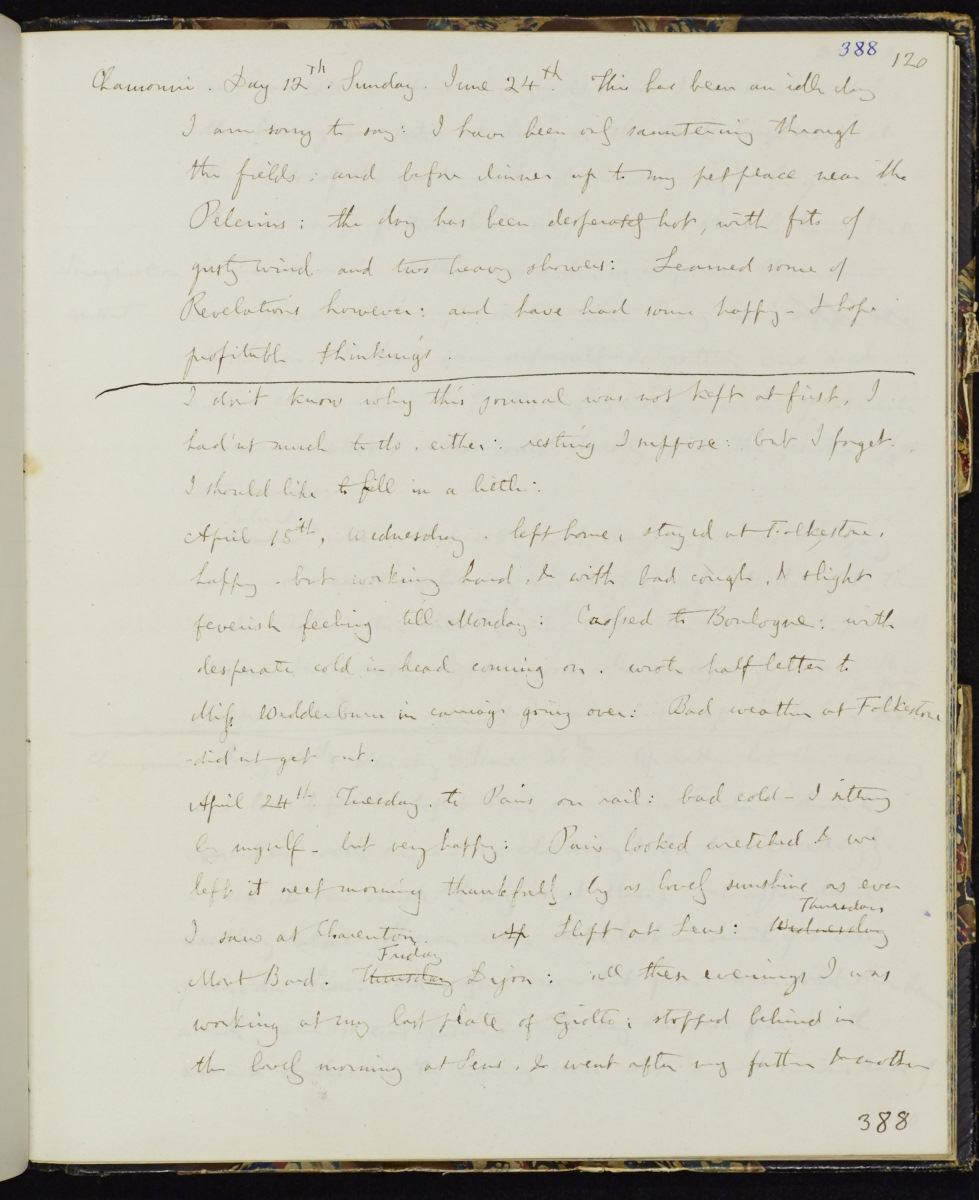 388 120
Chamouni. Day 12th. Sunday. June 24th. This has been an idle day
I am sorry to say: I have been only sauntering through
the fields: and before dinner up to my pet place near the
Pelerins: the day has been desperately hot, with fits of
gusty wind and two heavy showers: Learned some of
Revelations however: and have had some happy - I hope
profitable thinkings.
I don't know why this journal was not kept at first, I
had'nt much to do, either: resting I suppose: but I forget.
I should like to fill in a little:
April 18th, Wednesday. left home, stayed at Folkestone,
happy - but working hard, & with bad cough, & slight
feverish feeling till Monday: Crossed to Boulogne: with
desperate cold in head coming on. wrote half letter to
Miss Wedderburn in carriage going over: Bad weather at Folkestone
- did'nt get out.
April 24th Tuesday. to Paris on rail: bad cold - I sitting
by myself - but very happy: Paris looked wretched & we
left it next morning thankfully. by as lovely sunshine as ever
I saw at Charenton. Ap Slept at Sens: Wednesday Thursday
Mont Bard. Thursday Friday Dijon: all these evenings I was
working at my last plate of Giotto; stopped behind in
the lovely morning at Sens, & went after my father & mother
388